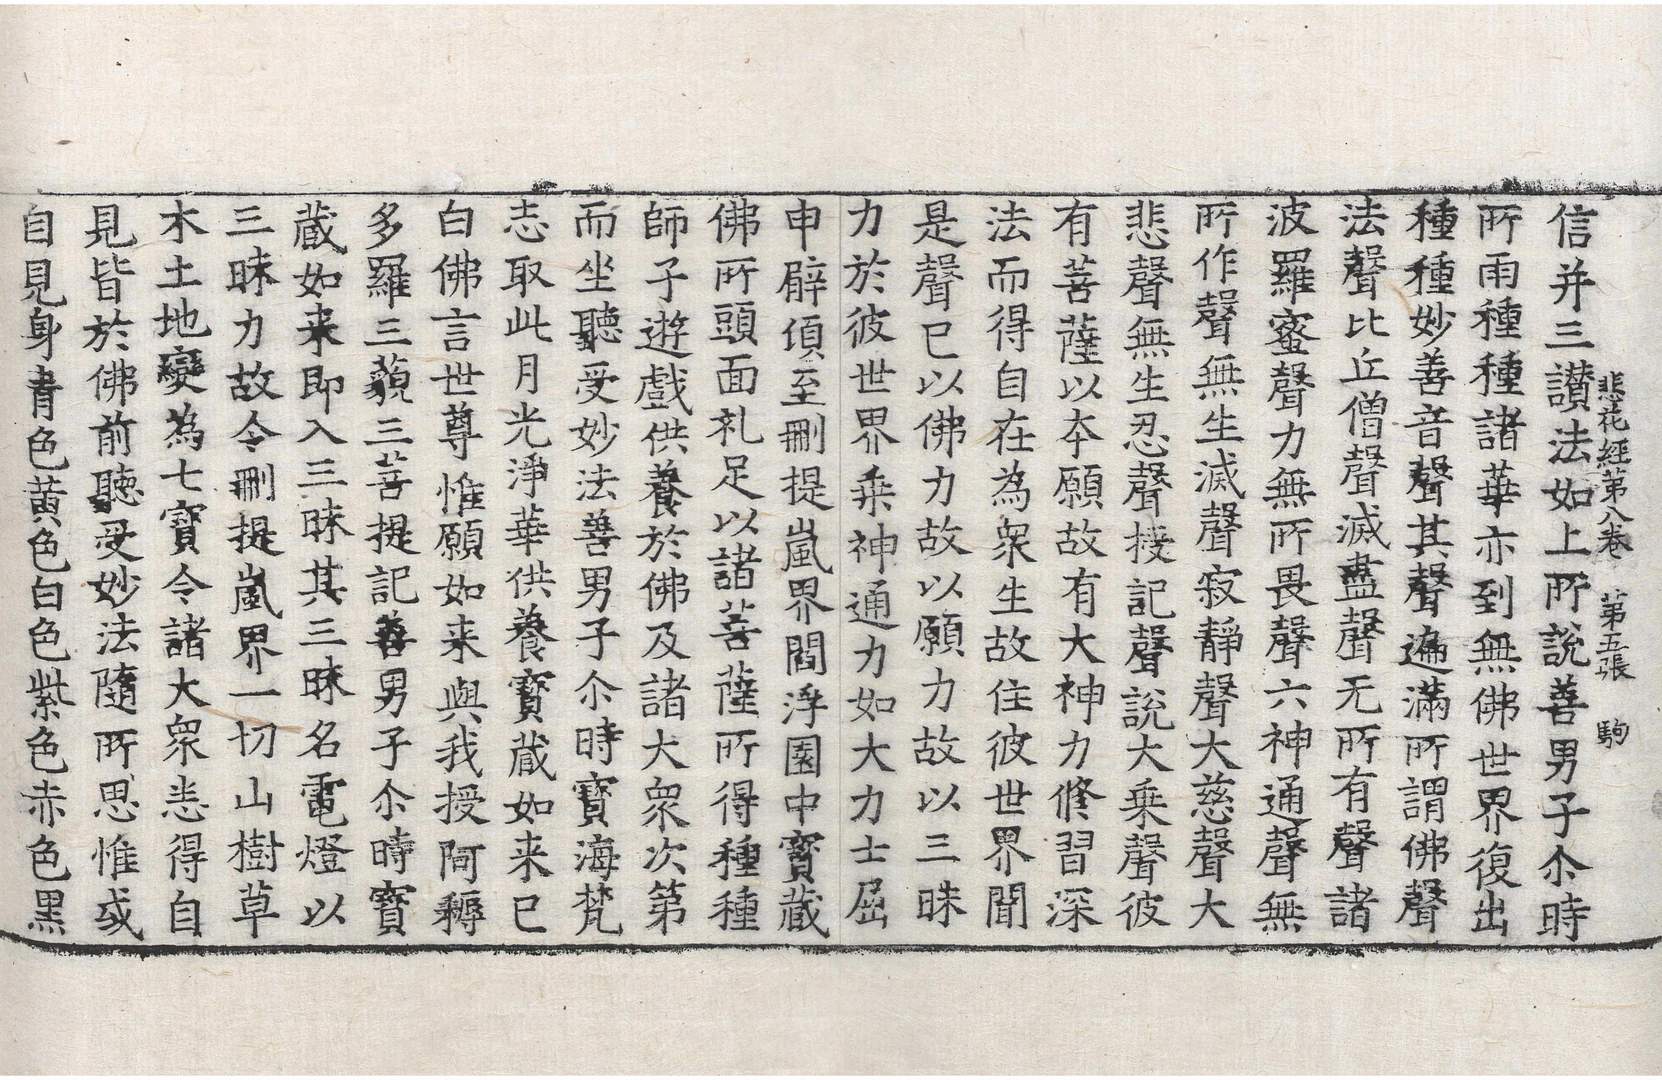 悲花經第八卷 第五張 駒
信并三讃法如上所說善男子尒時
所雨種種諸華亦到無佛世界復出
種種妙善音聲其聲遍滿所謂佛聲
法聲比丘僧聲滅盡聲无所有聲諸
波羅蜜聲力無所畏聲六神通聲無
所作聲無生滅聲寂靜聲大慈聲大
悲聲無生忍聲授記聲說大乘聲彼
有菩薩以夲願故有大神力修習深
法而得自在為衆生故住彼世界聞
是聲已以佛力故以願力故以三昧
力於彼世界乘神通力如大力士屈
申臂頃至刪提嵐界閻浮園中寶藏
佛所頭面礼足以諸菩薩所得種種
師子遊戲供養於佛及諸大衆次第
而坐聽受妙法善男子尒時寶海梵
志取此月光淨華供養寶蔵如来已
白佛言世尊惟願如来與我授阿耨
多羅三藐三菩提記善男子尒時寶
蔵如来即入三昧其三昧名電燈以
三昧力故令刪提嵐界一切山樹草
木土地變為七寶令諸大衆悉得自
見皆於佛前聽受妙法隨所思惟或
自見身青色黄色白色紫色赤色黑